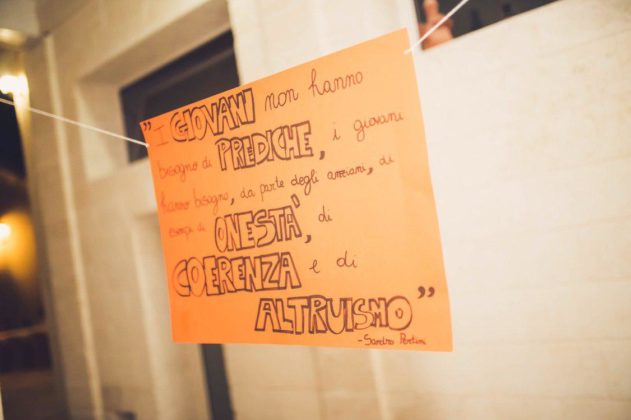 "I GIOVANI non hanno
bisogno di PREDICHE, i giovani
hanno bisogno, da parte degli anziani, di
esempi di ONESTÀ, di
COERENZA e di
ALTRUISMO"
-Sandro Pertini